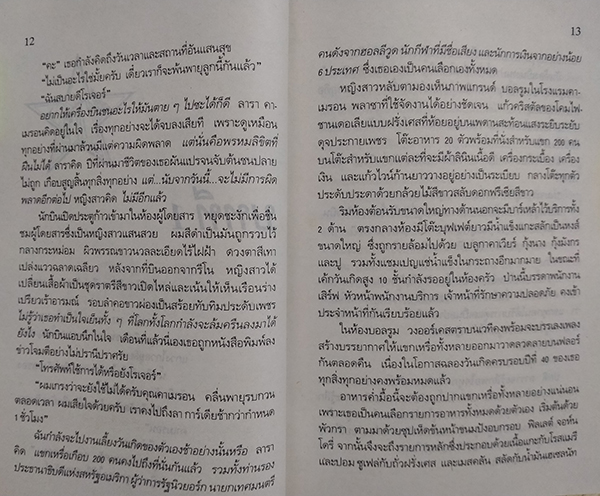 12
"คะ" เธอกำลังคิดถึงวันเวลาและสถานที่อันแสนสุข
"ไม่เป็นอะไรใช่มั้ยครับ เดี๋ยวเราก็จะพ้นพายุลูกนี้กันแล้ว"
"ฉันสบายดีโรเจอร์"
อยากให้เครื่องบินชนอะไรให้มันตาย ๆ ไปซะได้ก็ดี ลารา คา-
เมรอนคิดอยู่ในใจ เรื่องทุกอย่างจะได้จบลงเสียที เพราะดูเหมือน
ทุกอย่างที่ผ่านมาล้วนมีแต่ความผิดพลาด แต่นั่นคือพรหมลิขิตที่
ฝืนไม่ได้ ลาราคิด ปีที่ผ่านมาชีวิตของเธอผันแปรจนจับต้นชนปลาย
ไม่ถูก เกือบสูญสิ้นทุกสิ่งทุกอย่าง แต่...นับจากวันนี้...จะไม่มีการผิด
พลาดอีกต่อไป หญิงสาวคิด ไม่มีอีกแล้ว
นักบินเปิดประตูก้าวเข้ามาในห้องผู้โดยสาร หยุดชะงักเพื่อชื่น
ชมผู้โดยสารซึ่งเป็นหญิงสาวแสนสวย ผมสีดำเป็นมันถูกรวบไว้
กลางกระหม่อม ผิวพรรณขาวนวลละเอียดไร้ไฝฝ้า ดวงตาสีเทา
เปล่งแววฉลาดเฉลียว หลังจากที่บินออกจากรีโน หญิงสาวได้
เปลี่ยนเสื้อผ้าเป็นชุดราตรีสีขาวเปิดไหล่และเน้นให้เห็นเรือนร่าง
เปรียวเร้าอารมณ์ รอบลำคอขาวผ่องเป็นสร้อยทับทิมประดับเพชร
ไม่รู้ว่าเธอทำเป็นใจเย็นทั้ง ๆ ที่โลกทั้งโลกกำลังจะล้มครืนลงมาได้
ยังไง นักบินแอบนึกในใจ เดือนที่แล้วนี่เองเธอถูกหนังสือพิมพ์ลง
ข่าวโจมตีอย่างไม่ปรานีปราศรัย
"โทรศัพท์ใช้การได้หรือยังโรเจอร์"
"ผมเกรงว่าจะยังใช้ไม่ได้ครับคุณคาเมรอน คลื่นพายุรบกวน
ตลอดเวลา ผมเสียใจด้วยครับ เราคงไปถึงลา การ์เดียช้ากว่ากำหนด
1 ชั่วโมง"
ฉันกำลังจะไปงานเลี้ยงวันเกิดของตัวเองช้าอย่างนั้นหรือ ลารา
คิด แขกเหรื่อเกือบ 200 คนคงไปถึงที่นั่นกันแล้ว รวมทั้งท่านรอง
ประธานาธิบดีแห่งสหรัฐอเมริกา ผู้ว่าการรัฐนิวยอร์ก นายกเทศมนตรี
13
คนดังจากฮอลลีวูด นักกีฬาที่มีชื่อเสียง และนักการเงินจากอย่างน้อย
6 ประเทศ ซึ่งเธอเองเป็นคนเลือกเองทั้งหมด
หญิงสาวหลับตามองเห็นภาพแกรนด์ บอลรูมในโรงแรมคา-
เมรอน พลาซาที่ใช้จัดงานได้อย่างชัดเจน แก้วคริสตัลของโคมไฟ-
ชานเดอเลียแบบฝรั่งเศสที่ห้อยอยู่บนเพดานสะท้อนแสงระยิบระยับ
ดุจประกายเพชร โต๊ะอาหาร 20 ตัวพร้อมที่นั่งสำหรับแขก 200 คน
บนโต๊ะสำหรับแขกแต่ละที่จะมีผ้าลินินเนื้อดี เครื่องกระเบื้อง เครื่อง
เงิน และแก้วไวน์ก้านยาววางอยู่อย่างเป็นระเบียบ กลางโต๊ะทุกตัว
ประดับประดาด้วยกล้วยไม้สีขาวสลับดอกฟรีเซียสีขาว
ริมห้องต้อนรับขนาดใหญ่ทางด้านนอกจะมีบาร์เหล้าไว้บริการทั้ง
2 ด้าน ตรงกลางห้องมีโต๊ะบุฟเฟต์ยาวมีน้ำแข็งแกะสลักเป็นหงส์
ขนาดใหญ่ ซึ่งถูกรายล้อมไปด้วย เบลูกาคาเวียร์ กุ้งนาง กุ้งมังกร
และปู รวมทั้งแชมเปญแช่น้ำแข็งในกระถางอีกมากมาย ในขณะที่
เค้กวันเกิดสูง 10 ชั้นกำลังรออยู่ในห้องครัว ป่านนี้บรรดาพนักงาน
เสิร์ฟ หัวหน้าพนักงานบริการ เจ้าหน้าที่รักษาความปลอดภัย คงเข้า
ประจำหน้าที่กันเรียบร้อยแล้ว
ในห้องบอลรูม วงออร์เคสตราบนเวทีคงพร้อมจะบรรเลงเพลง
สร้างบรรยากาศให้แขกเหรื่อทั้งหลายออกมาวาดลวดลายบนฟลอร์
กันตลอดคืน เนื่องในโอกาสฉลองวันเกิดครบรอบปีที่ 40 ของเธอ
ทุกสิ่งทุกอย่างคงพร้อมหมดแล้ว
อาหารค่ำมื้อนี้จะต้องถูกปากแขกเหรื่อทั้งหลายอย่างแน่นอน
เพราะเธอเป็นคนเลือกรายการอาหารทั้งหมดด้วยตัวเอง เริ่มต้นด้วย
ฟัวกรา ตามมาด้วยซุปเห็ดข้นหน้าขนมปังอบกรอบ ฟิลเลต์ จอห์น
โดรี่ จากนั้นจึงจะถึงรายการหลักซึ่งประกอบด้วยเนื้อแกะกับโรสแมรี่
และปอม ซูเฟล่กับถั่วฝรั่งเศส และเมสคลัน สลัดกับน้ำมันเฮเซลนัท